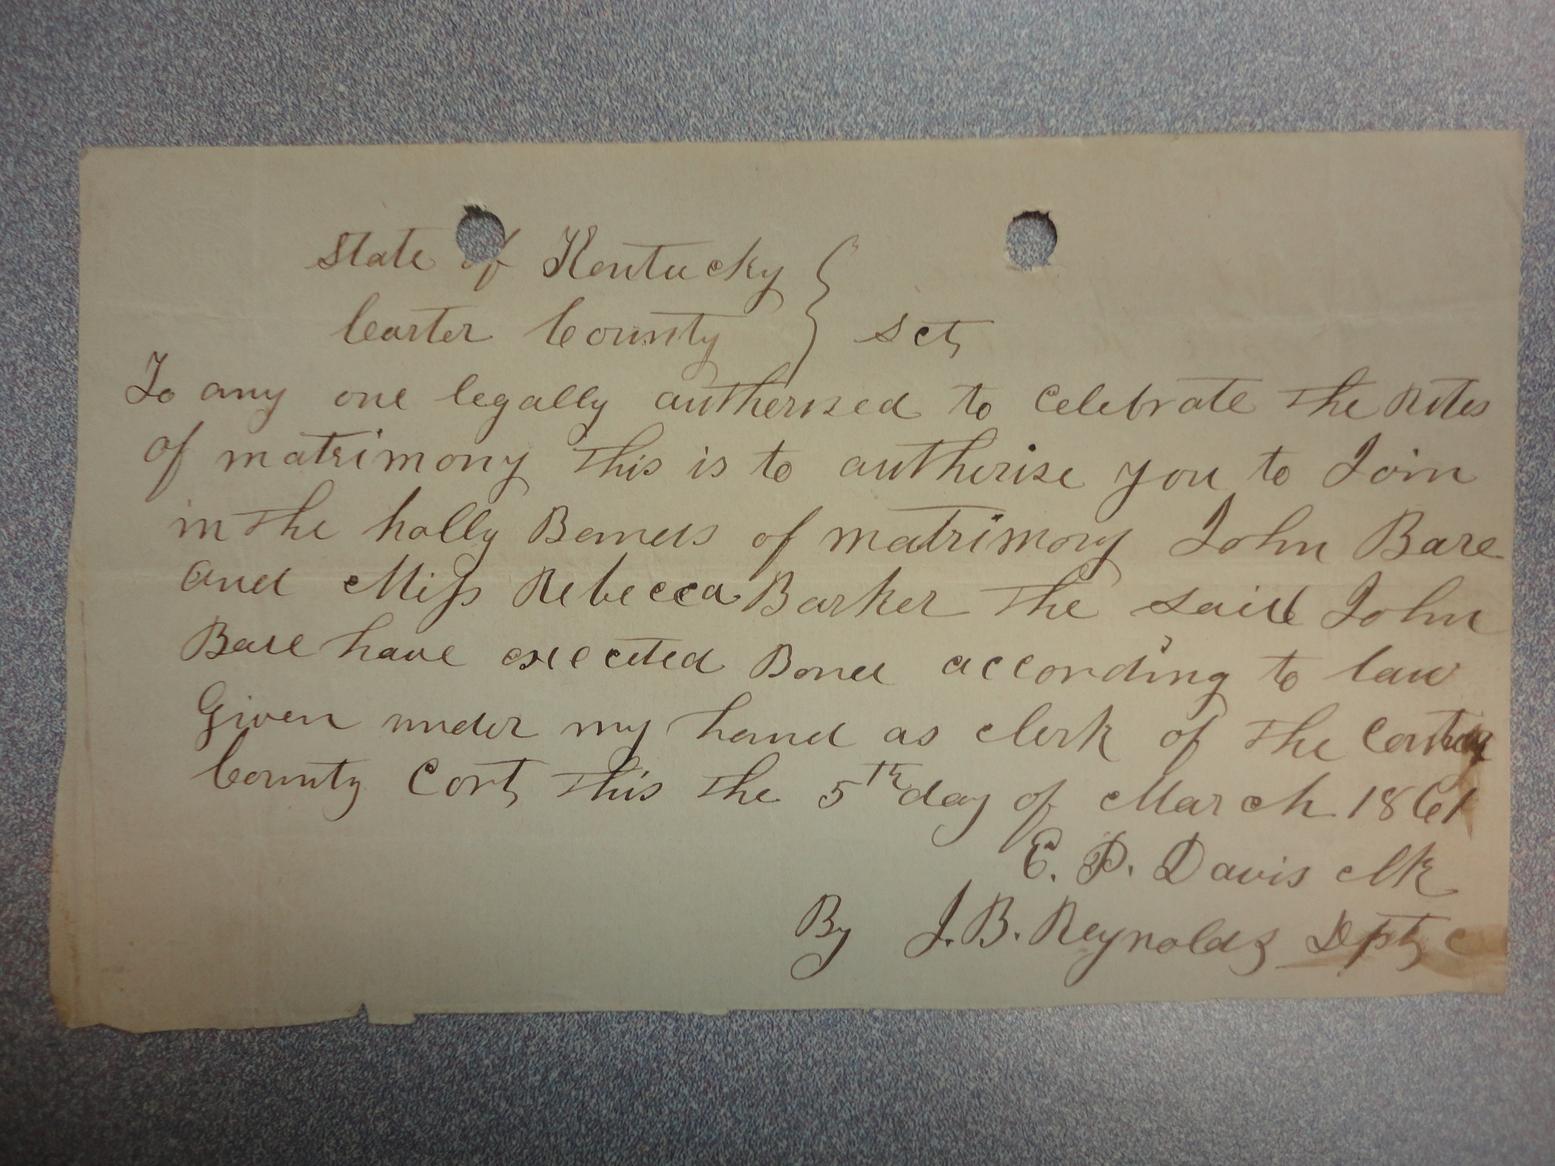 State of Kentucky }
Carter County } Sct,
To any one legally autherised to celebrate the Rites
of matrimony this is to autherise you to Join
in the holly Bands of matrimony John Bare
and Miss Rebecca Barker the said John
Bare have executed Bond according to law
Given under my hand as clerk of the
County Cort, this the 5th day of March 1861
E. P. Davis clk
By J. B. Reynolds Dpty c